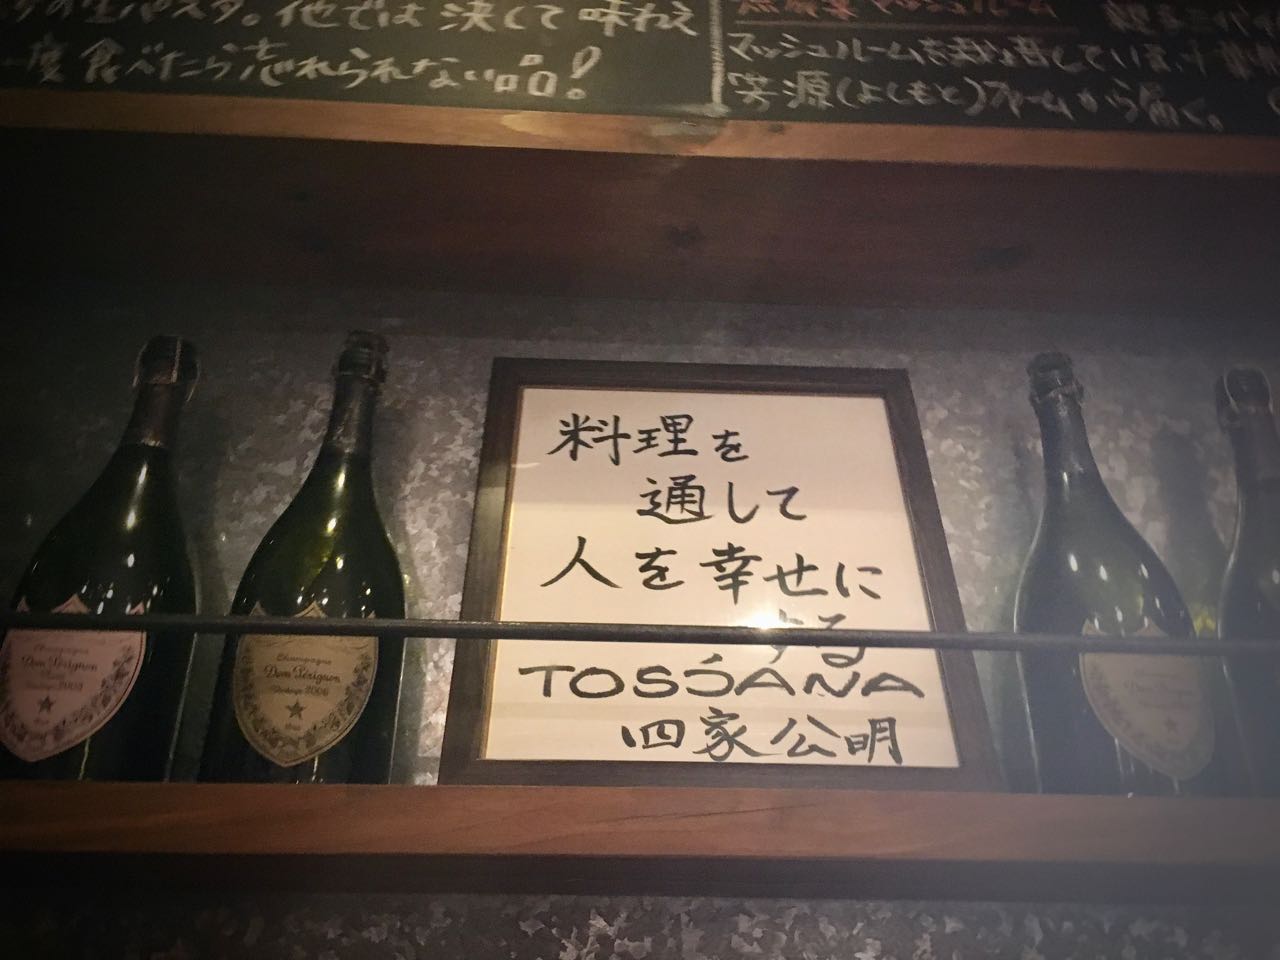 の生パスタ。他では決して味わえ
一度食べたら忘れられない品!
マッシュルーム
マッシュルームを栽培しています。千葉県
芳源(よしもと)ファームから届く。
料理を
通して
人を幸せに
する
TOSCANA
四家公明
Champagne
Dom Pérignon
Vintage 2003
Champagne
Dom Pérignon
Vintage 2006